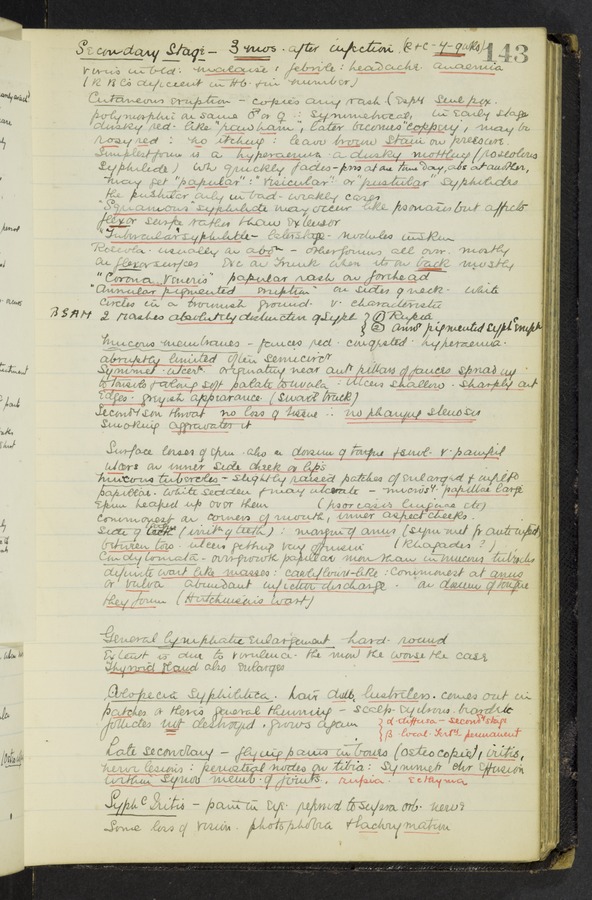 143
Secondary Stage - 3 mos. after infection (R+C - 4-9 wks)
Virus in bld: malaise: febrile: headache anaemia
(R.B.Cs deficient in Hb. + in number)
Cutaneous eruption - copies any rash (Exept
polymorphic on same ♂ or ♀: Symmetrical, in early stage
dusky red. like "raw ham", later becomes "coppery", may be
rosy red: no itching: leave brown stain on
Simplest form is a hyperaemia a dusky mottling (roseolous
Syphilide) wh quickly fades - pres at one time day, abs at another,
may get "papular": "vesicular" or "pustular" Syphilides
the pustular only in bad - weakly cases
"Squamous" syphilide may occur like psoriasis but affects
flexor surface rather than Extensor
"Tubercular" syphilide - later stage - nodules in skin
Roseola usually on abdn - other forms all over. mostly
on flexor surfaces on Trunk when its on back mostly
"Corona Veneris" papular rash on forehead
"annular pigmented eruption" on sides of neck. white
circles in a brownish ground. v. characteristic
BSAH 2 rashes absolutely distinctive of Syph ① Rupia
② annr pigmented Syphc Erupn
Mucous membranes - fauces red. congested. hyperaemia.
abruptly limited often semicircr
Symmetl ulcern originating near ant pillars of fauces spreading
to tonsils & along soft palate to uvula: ulcers shallow. Sharply cut
Edges. greyish appearance (Snail track)
Secondy son throat no loss of tissue: no pharyngl stenosis
Smoking aggravates it
Surface losses of Epm also on dorsum of tongue v. painful
ulcers on inner side cheek or lips
Mucous tubercles - slightly raised patches of enlarged &
papillae. White sodden & may ulcerate - papillae large
Epm heaped up over them (psoriasis linguae etc)
commonest on corners of mouth, inner aspect cheeks
Side of tongue (irritn of teeth): margin of anus (
between toes: ulcers getting very offensive (Rhagades?)
Condylomata - overgrowth papillae more than in mucous tubercles
definite wart like masses: cauliflower-like: Commonest at anus
or vulva abundant infective discharge. on dorsum of tongue
they form (Hutchinson's wart)
General lymphatic enlargement - hard. round
Extent is due to virulence. the more the worse the case
Thyroid gland also enlarges
Alopecia Syphilitica. hair dull, lustreless. comes out in
patches or there's general thinning - scalp, eyebrows.
follicles not destroyed. grows again
α diffusa - secondy stage
β local. permanent
Late secondary - flying pains in bones (osteocopic), iritis,
nerve lesions: periosteal nodes on tibia: Symmetr chr Effusion
within Synovl memb. of joints. rupia. Ecthyma
Syphc Iritis - pain in eye. referred to supra orb. nerve
Some loss of vision. photophobia & lachrymation